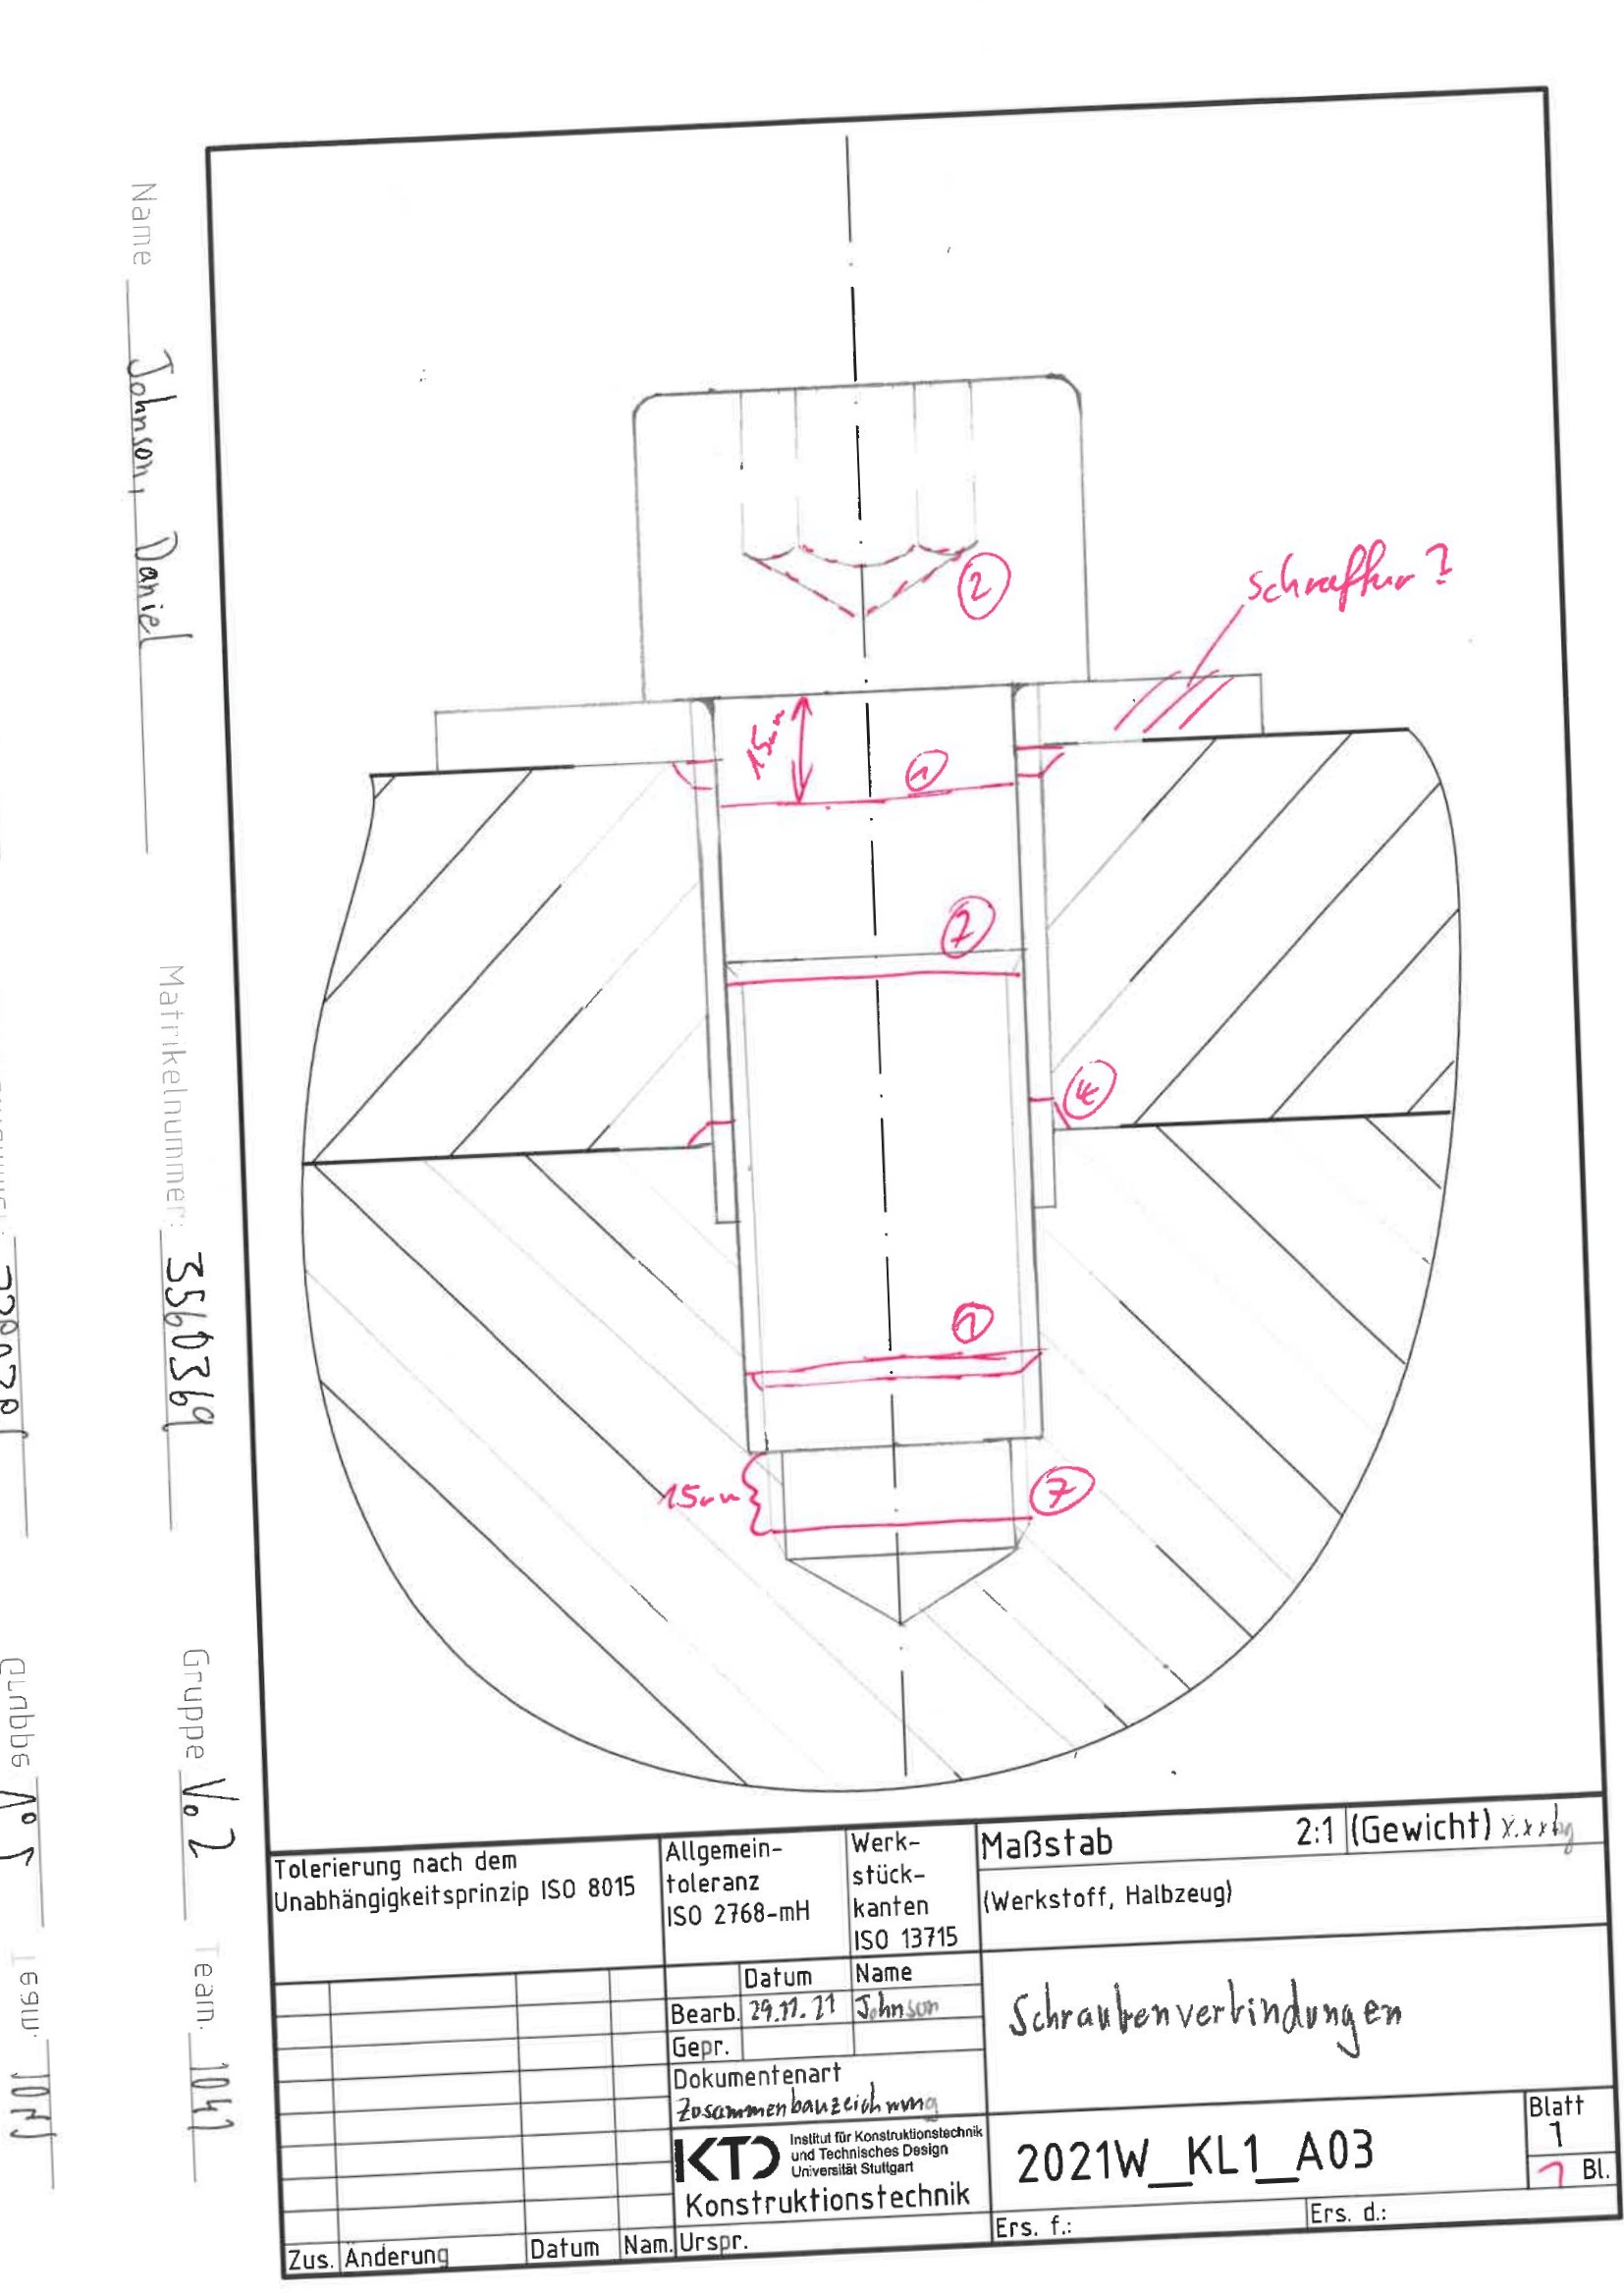 Name Johnson, Daniel
Matrikelnummer: 3560369
Gruppe Vo2
Team: 1041
schraffur?
2
15mm
1
7
4
1
15mm
7
Tolerierung nach dem
Unabhängigkeitsprinzip ISO 8015
Allgemein-
toleranz
ISO 2768-mH
Werk-
stück-
kanten
ISO 13715
Maßstab 2:1 (Gewicht) x.xxkg
(Werkstoff, Halbzeug)
Datum Name
Bearb. 29.11.21 Johnson
Gepr.
Dokumentenart
Zusammenbauzeichnung
Schraubenverbindungen
KTD Institut für Konstruktionstechnik
und Technisches Design
Universität Stuttgart
Konstruktionstechnik
2021W_KL1_A03
Blatt
1
1 Bl.
Zus. Änderung Datum Nam. Urspr. Ers. f.: Ers. d.: